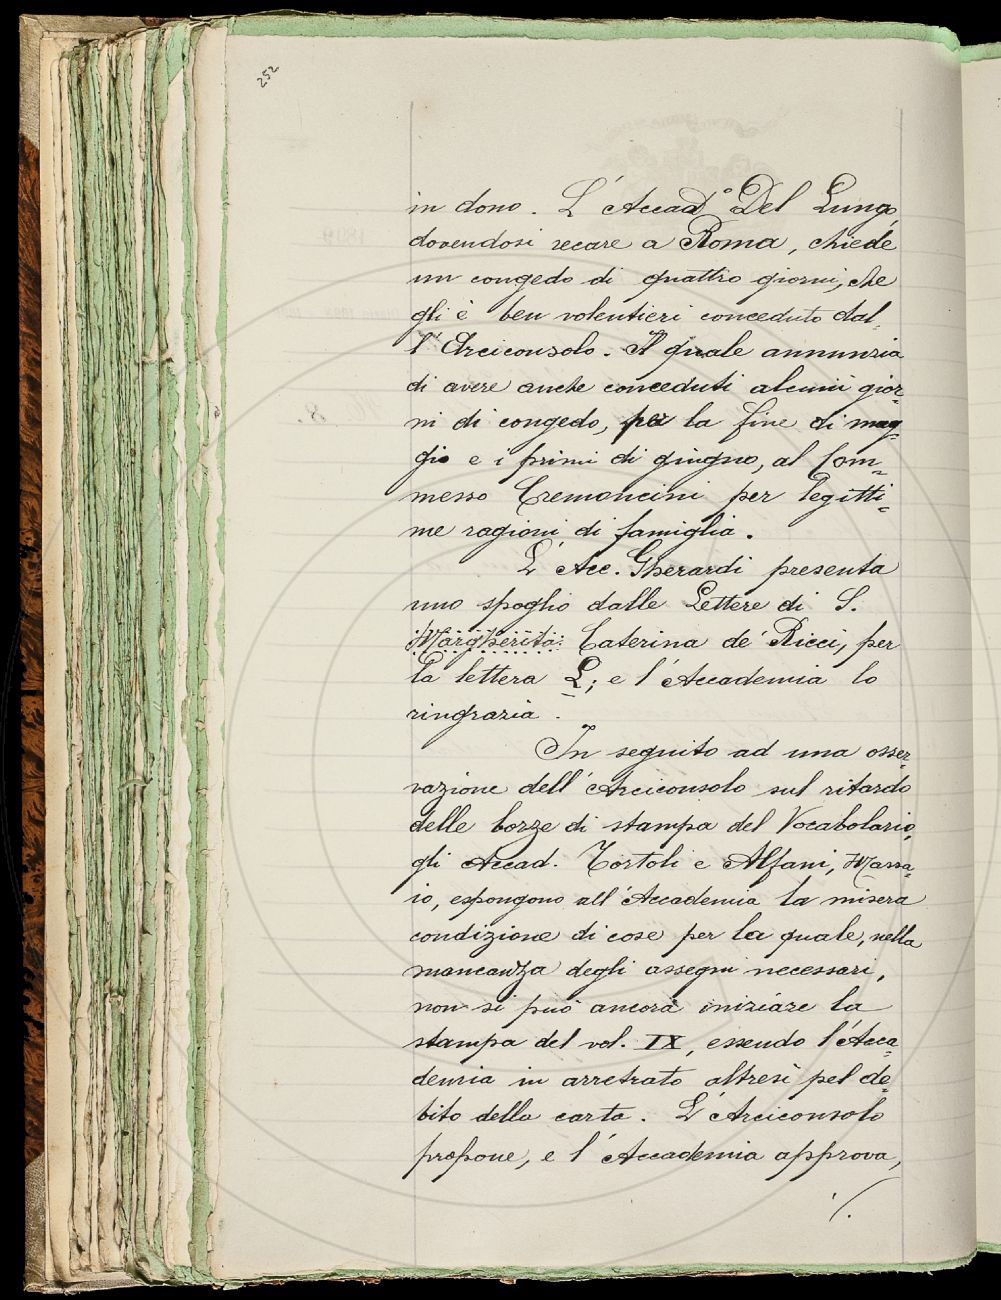 252
in dono. L'Accad.o Del Lungo,
dovendosi recare a Roma, chiede
un congedo di quattro giorni, che
gli è ben volentieri conceduto dal-
l'Arciconsolo. Il quale annunzia
di avere anche conceduti alcuni gior-
ni di congedo, per la fine di mag-
gio e i primi di giugno, al Com-
messo Cremoncini per legitti-
me ragioni di famiglia.
L'Acc. Gherardi presenta
uno spoglio dalle Lettere di S.
Margherita: Caterina de' Ricci, per
la lettera L; e l'Accademia lo
ringrazia.
In seguito ad una osser-
vazione dell'Arciconsolo sul ritardo
delle bozze di stampa del Vocabolario,
gli Accad. Tortoli e Alfani, Massa-
io, espongono all'Accademia la misera
condizione di cose per la quale, nella
mancanza degli assegni necessari,
non si può ancora iniziare la
stampa del vol. IX, essendo l'Acca-
demia in arretrato altresì pel de-
bito della carta. L'Arciconsolo
propone, e l'Accademia approva,
./.